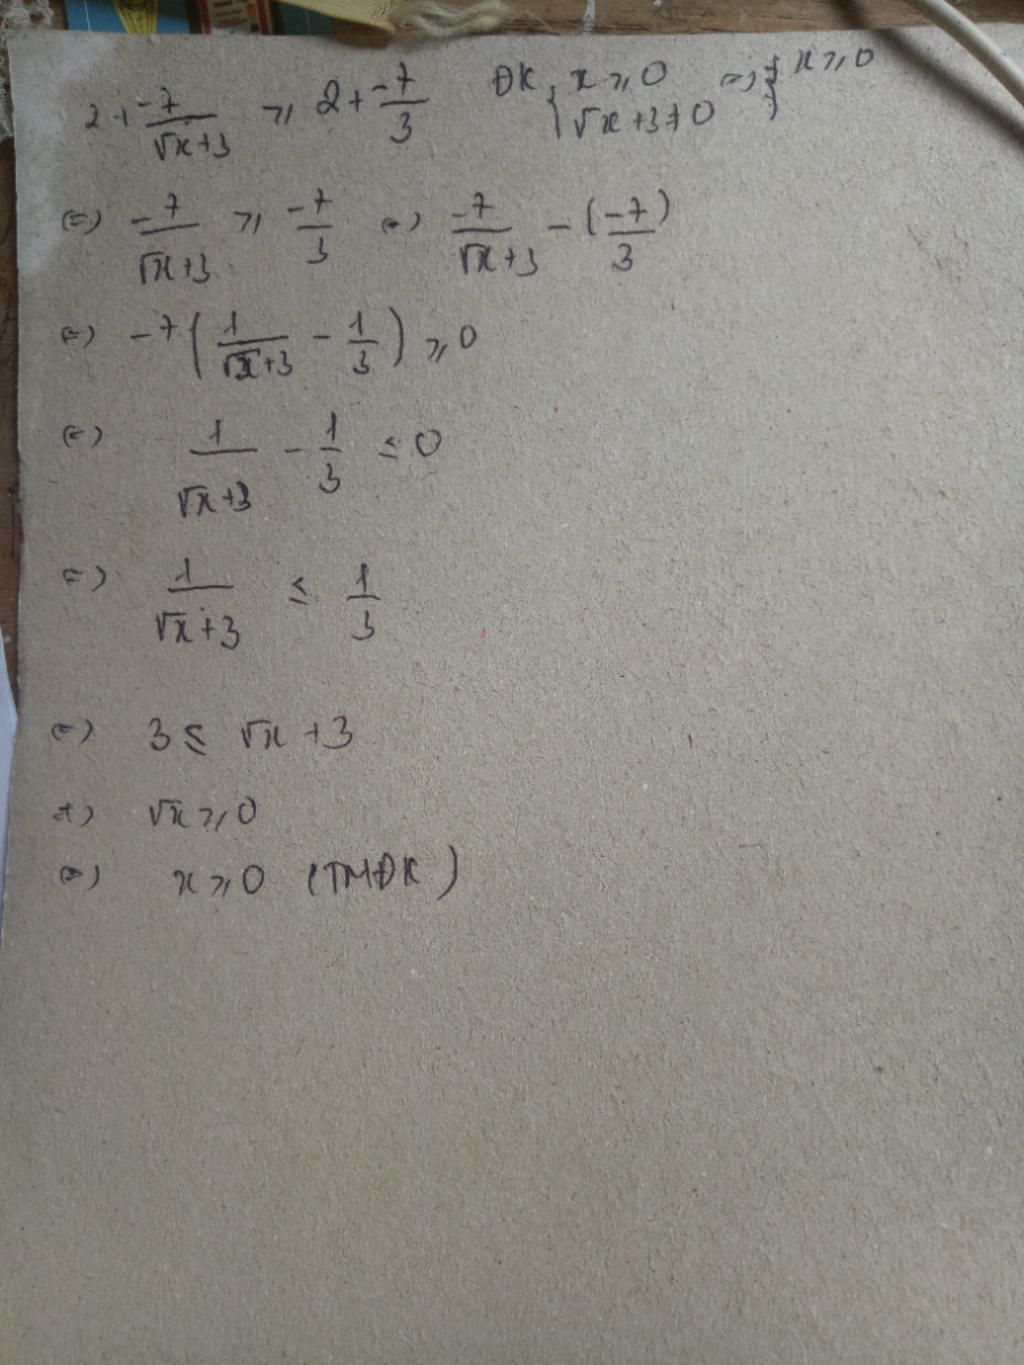 2 + \frac{-7}{\sqrt{x}+3} ≥ 2 + \frac{-7}{3} ĐK { x ≥ 0 ; \sqrt{x}+3 ≠ 0 <=> { x ≥ 0
<=> \frac{-7}{\sqrt{x}+3} ≥ \frac{-7}{3} <=> \frac{-7}{\sqrt{x}+3} - (\frac{-7}{3})
<=> -7 ( \frac{1}{\sqrt{x}+3} - \frac{1}{3} ) ≥ 0
<=> \frac{1}{\sqrt{x}+3} - \frac{1}{3} ≤ 0
<=> \frac{1}{\sqrt{x}+3} ≤ \frac{1}{3}
<=> 3 ≤ \sqrt{x} + 3
<=> \sqrt{x} ≥ 0
<=> x ≥ 0 (TMĐK)